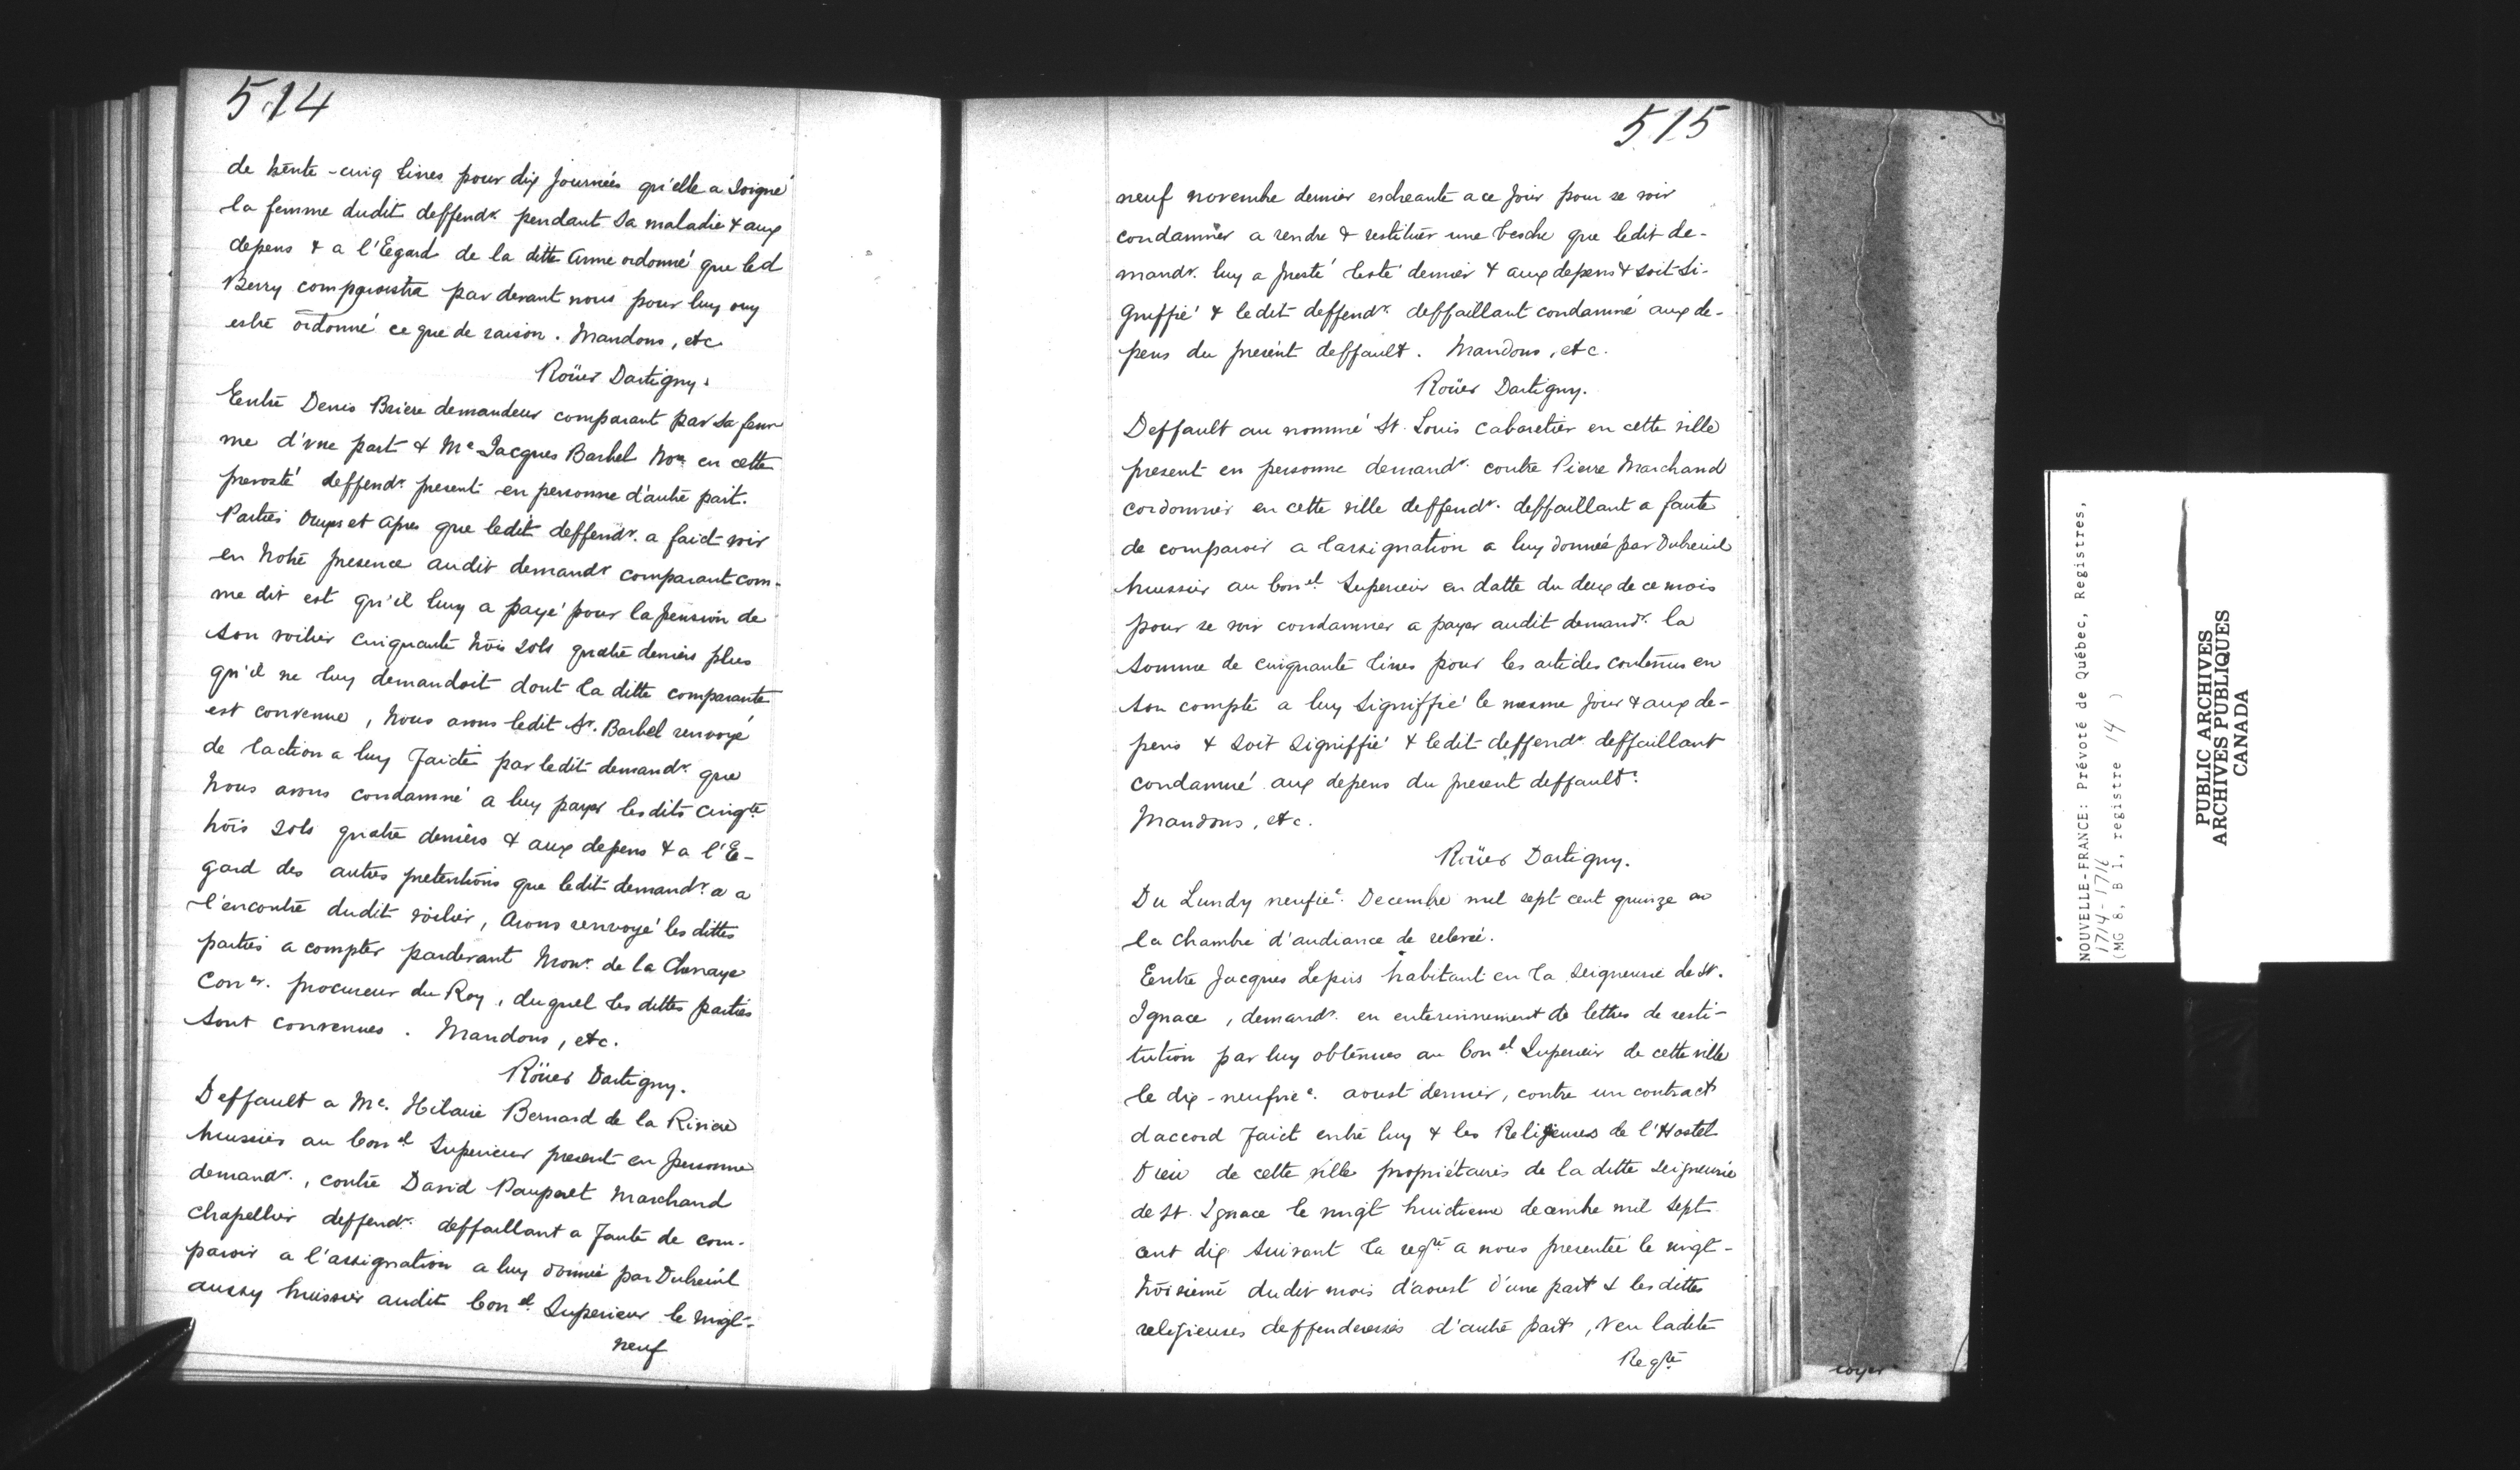 514
de trente-cinq livres pour dix journées qu'elle a soigné
la femme dudit deffendr. pendant sa maladie & aux
depens & a l'Egard de la ditte Anne ordonné que led
Berry comparoistra par devant nous pour luy ouy
estre ordonné ce que de raison. Mandons, etc
Roüer Dartigny.
Entre Denis Briere demandeur comparant par sa fem
me d'vne part & Me Jacques Barbel Nore en cette
prevosté deffendr. present en personne d'autre part.
Parties ouyes et apres que ledit deffendr. a faict voir
en notre presence audit demandr comparant com-
me dit est qu'il luy a payé pour la pension de
son voilier cinquante trois sols quatre deniers plus
qu'il ne luy demandoit dont la ditte comparante
est convenue, Nous avons ledit Sr. Barbel renvoyé
de laction a luy faicte par ledit demandr. que
Nous avons condamné a luy payer lesdits cinqte
trois sols quatre deniers & aux depens & a l'E-
gard des autres pretentions que ledit demandr. a a
l'encontre dudit voilier, Avons renvoyé les dittes
parties a compter pardevant Monr. de la Chenaye
Coner. procureur du Roy, duquel les dittes parties
sont convenues. Mandons, etc.
Roüer Dartigny.
Deffault a Me. Hilaire Bernard de la Riviere
huissier au Conel Superieur present en personne
demandr., contre David Pauperet Marchand
chapellier deffendr. deffaillant a faute de com-
paroir a l'assignation a luy donnée par Dubreuil
aussy huissier audit Conel Superieur le vingt-
neuf
515
neuf novembre dernier escheante a ce jour pour se voir
condamner a rendre & restituer une besche que ledit de-
mandr. luy a presté lesté dernier & aux depens & soit si-
gniffié & ledit deffendr. deffaillant condamné aux de-
pens du present deffault. Mandons, etc.
Roüer Dartigny.
Deffault au nommé St. Louis cabaretier en cette ville
present en personne demandr. contre Pierre Marchand
cordonnier en cette ville deffendr. deffaillant a faute
de comparoir a lassignation a luy donnée par Dubreuil
huissier au Conel. Superieur en datte du deux de ce mois
pour se voir condamner a payer audit demandr. la
somme de cinquante livres pour les articles contenus en
son compte a luy signiffié le mesme jour & aux de-
pens & soit signiffié & ledit deffendr. deffaillant
condamné aux depens du present deffault.
Mandons, etc.
Roüer Dartigny.
Du Lundy neufie. Decembre mil sept cent quinze en
la chambre d'audiance de relevé.
Entre Jacques Lepuis habitant en la seigneurie de St.
Ignace, demandr. en enterinnement de lettres de resti-
tution par luy obtenues au Conel Superieur de cette ville
le dix-neufvie. aoust dernier, contre un contract
daccord faict entre luy & les Religieuses de l'Hostel
Dieu de cette ville propriétaires de la ditte seigneurie
de St. Ignace le vingt huictieme decembre mil sept
cent dix suivant la reqte a nous presentée le vingt-
troisieme dudit mois d'aoust d'une part & les dittes
religieuses deffenderesses d'autre part, Veu ladite
Reqte
NOUVELLE-FRANCE: Prévoté de Québec, Registres,
1714-1716
(MG 8, B 1, registre 14 )
PUBLIC ARCHIVES
ARCHIVES PUBLIQUES
CANADA